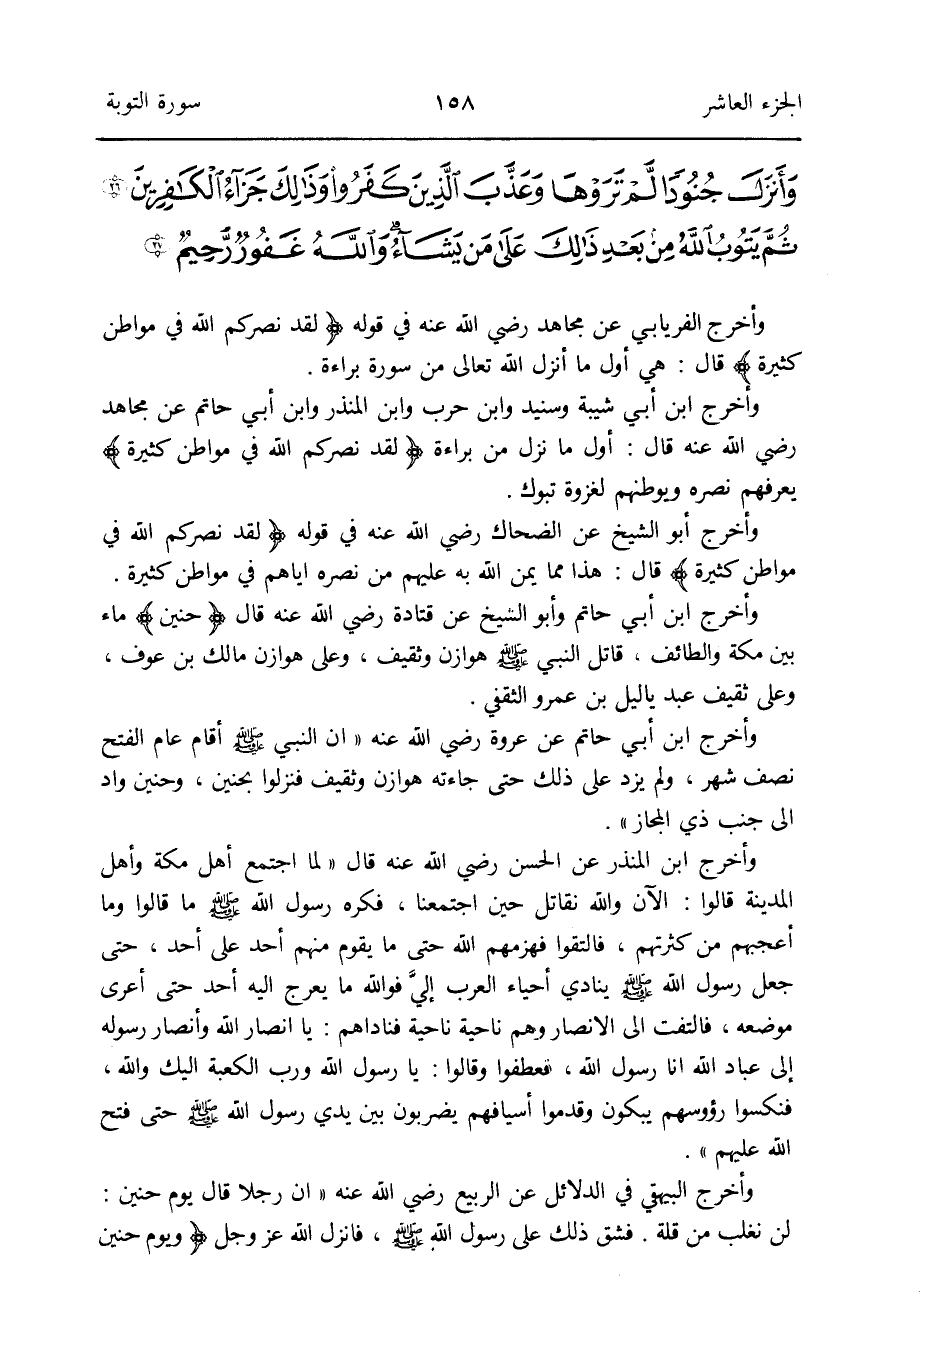 الجزء العاشر ١٥٨ سورة التوبة
وَأَنزَلَ جُنُودًا لَّمْ تَرَوْهَا وَعَذَّبَ ٱلَّذِينَ كَفَرُوا۟ وَذَٰلِكَ جَزَآءُ ٱلْكَٰفِرِينَ ٢٦
ثُمَّ يَتُوبُ ٱللَّهُ مِنۢ بَعْدِ ذَٰلِكَ عَلَىٰ مَن يَشَآءُ ۗ وَٱللَّهُ غَفُورٌ رَّحِيمٌ ٢٧
وأخرج الفريابي عن مجاهد رضي الله عنه في قوله ﴿ لقد نصركم الله في مواطن
كثيرة ﴾ قال : هي أول ما أنزل الله تعالى من سورة براءة .
وأخرج ابن أبي شيبة وسنيد وابن حرب وابن المنذر وابن أبي حاتم عن مجاهد
رضي الله عنه قال : أول ما نزل من براءة ﴿ لقد نصركم الله في مواطن كثيرة ﴾
يعرفهم نصره ويوطنهم لغزوة تبوك .
وأخرج أبو الشيخ عن الضحاك رضي الله عنه في قوله ﴿ لقد نصركم الله في
مواطن كثيرة ﴾ قال : هذا مما يمن الله به عليهم من نصره اياهم في مواطن كثيرة .
وأخرج ابن أبي حاتم وأبو الشيخ عن قتادة رضي الله عنه قال ﴿ حنين ﴾ ماء
بين مكة والطائف ، قاتل النبي ﷺ هوازن وثقيف ، وعلى هوازن مالك بن عوف ،
وعلى ثقيف عبد ياليل بن عمرو الثقفي .
وأخرج ابن أبي حاتم عن عروة رضي الله عنه « ان النبي ﷺ أقام عام الفتح
نصف شهر ، ولم يزد على ذلك حتى جاءته هوازن وثقيف فنزلوا بحنين ، وحنين واد
الى جنب ذي المجاز » .
وأخرج ابن المنذر عن الحسن رضي الله عنه قال « لما اجتمع أهل مكة وأهل
المدينة قالوا : الآن والله نقاتل حين اجتمعنا ، فكره رسول الله ﷺ ما قالوا وما
أعجبهم من كثرتهم ، فالتقوا فهزمهم الله حتى ما يقوم منهم أحد على أحد ، حتى
جعل رسول الله ﷺ ينادي أحياء العرب إليَّ فوالله ما يعرج اليه أحد حتى أعرى
موضعه ، فالتفت الى الانصار وهم ناحية ناحية فناداهم : يا انصار الله وأنصار رسوله
إلى عباد الله انا رسول الله ، فعطفوا وقالوا : يا رسول الله ورب الكعبة اليك والله ،
فنكسوا رؤوسهم يبكون وقدموا أسيافهم يضربون بين يدي رسول الله ﷺ حتى فتح
الله عليهم » .
وأخرج البيهقي في الدلائل عن الربيع رضي الله عنه « ان رجلا قال يوم حنين :
لن نغلب من قلة . فشق ذلك على رسول الله ﷺ ، فانزل الله عز وجل ﴿ ويوم حنين